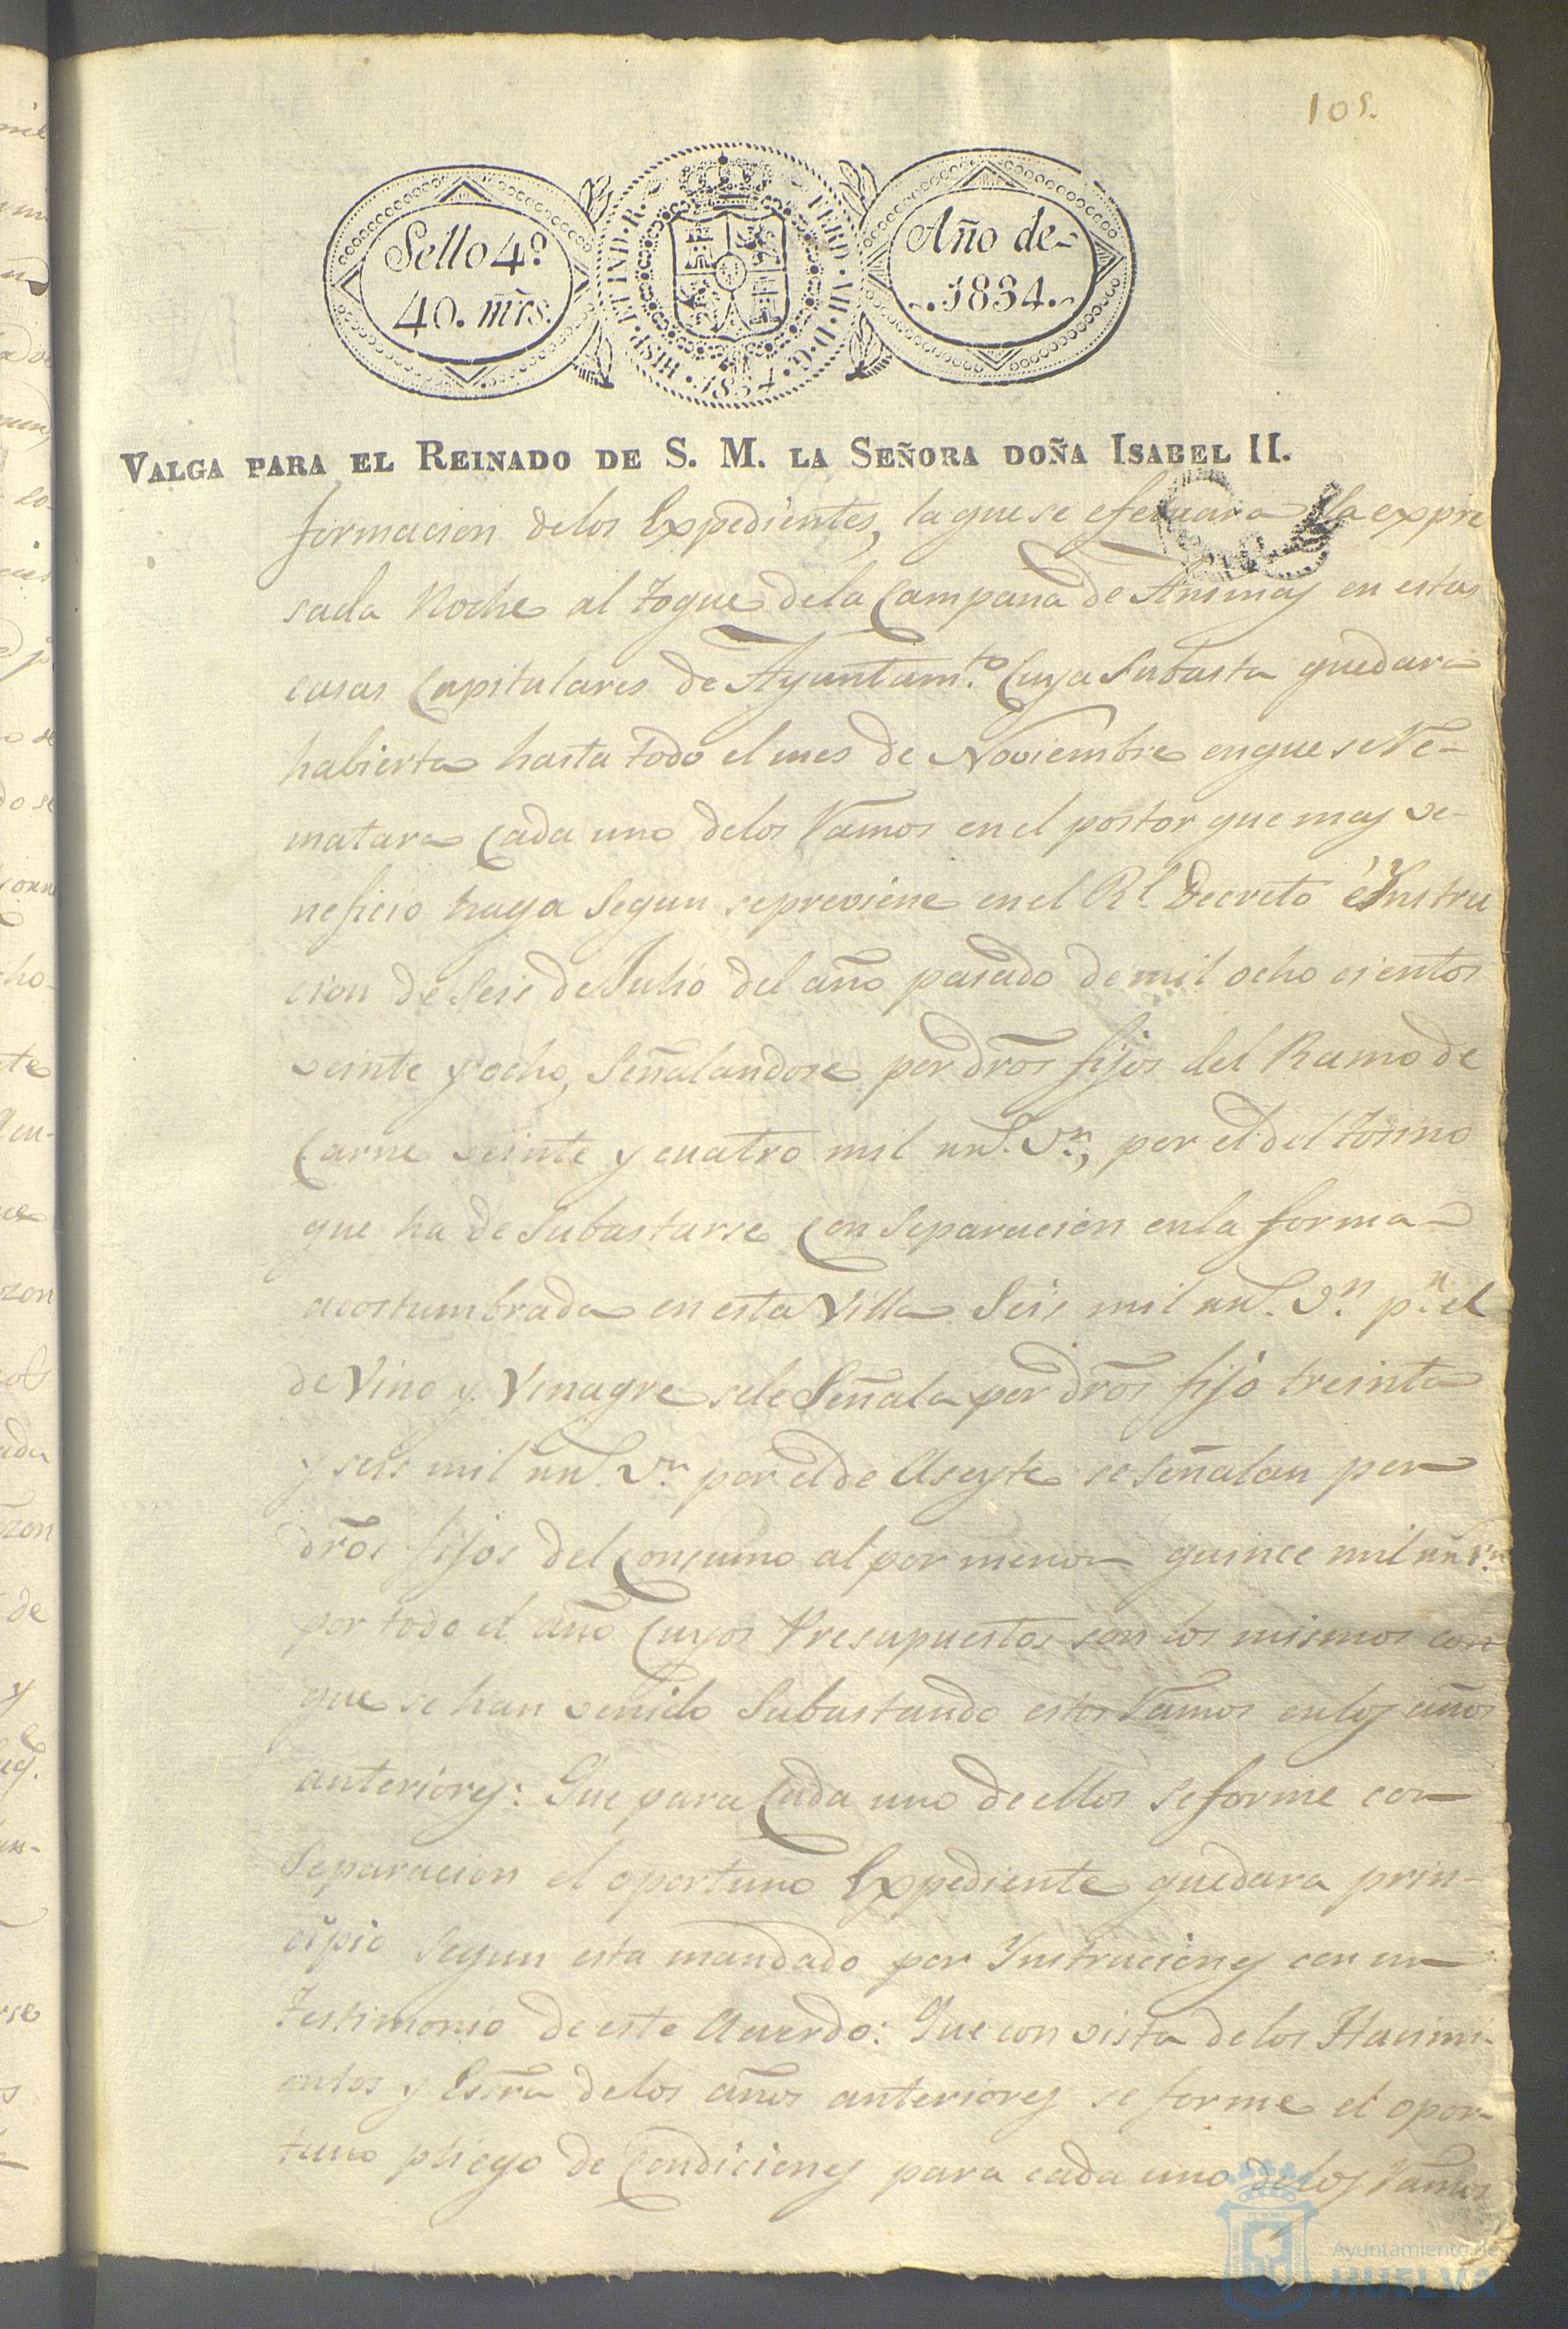 105.
Sello 4º
40. mrs.
HISP. ET IND. R. FERD. VII. D. G. 1834.
Año de
1834.
VALGA PARA EL REINADO DE S. M. LA SEÑORA DOÑA ISABEL II.
formacion delos Expedientes, la que se efectuara la expre
sada Noche al toque dela Campana de Animas en estas
casas Capitulares de Ayuntamto. Cuya Subasta quedara
habierta hasta todo el mes de Noviembre en que se Re-
matara Cada uno delos Ramos en el postor que mas ve-
neficio haga Segun se previene en el Rl. Decreto é Ynstru
cion de Seis de Julio del año pasado de mil ocho cientos
veinte y ocho, Señalandose por dros fijos del Ramo de
Carne veinte y cuatro mil rrs. vn., por el del tosino
que ha de Subastarse Con Separacion en la forma
acostumbrada en esta Villa Seis mil rrs. vn. pr. el
de Vino y Vinagre se le Señala por dros fijo treinta
y seis mil rrs. vn por el de Aseyte se señalan por
dros fijos del Consumo al por menor quince mil rrs vn
por todo el año Cuyos Presupuestos son los mismos con
que se han venido Subastando estos Ramos en los años
anteriores: Que para Cada uno de ellos se forme con
Separacion el oportuno Expediente quedara prin-
cipio Segun esta mandado por Ynstruciones con un
testimonio de este Acuerdo: Que con vista de los Hacimi-
entos y Essra delos años anteriores se forme el opor-
tuno pliego de Condiciones para cada uno delos Ramos
Ayuntamiento de
HUELVA